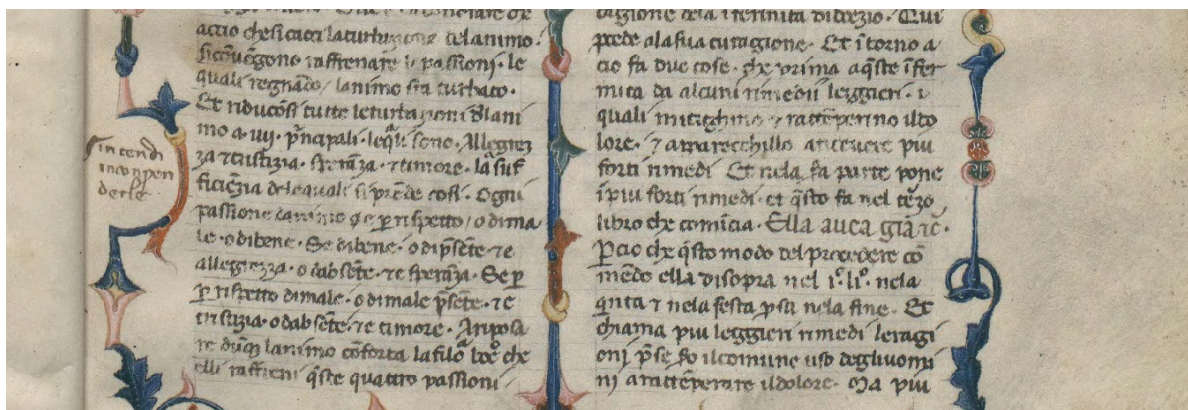 actio che si cacci la turbatione del animo.
si convegono raffrenare le passioni. le
quali regnado, lanimo sta turbato.
Et riduconsi tutte le turbationi dlani
mo a. iiij. principali. le qli sono. Allegrez
za τ tristizia. speraza. τ timore. la suf
ficiença dele quali si prede cosi. Ogni
passione danimo o e p rispetto, o di ma
le. o di bene. Se di bene. o di psete. τ e
allegrezza. o dab sete. τ e speraza. Se p
p rispetto di male. o di male psete. τ e
tristizia. o dab sete. τ e timore. A
re duq lanimo coforta la filo che
elli raffreni qste quattro passioni.
intendi
incopren
derle
cagione dela i fermita di boezio. Qui
pcede ala sua curagione. Et i torno a
cio fa due cose. che prima a qste i fer
mita da alcuni rimedii leggieri. i
quali mitighino τ rattēperino il do
lore. τ apparecchillo a ricevere piu
forti rimedi. Et nela. ija parte pone
i piu forti rimedi. et qsto fa nel terzo
libro che comicia. Ella avea gia τc.
Pcio che qsto modo del procedere co
medo ella di sopra nel io. lio. nela
quita τ nela sesta psa nela fine. Et
chiama piu leggieri rimedi le ragi
oni pse so il comune uso degli uomi
ni a rattēperare il dolore. Ma piu